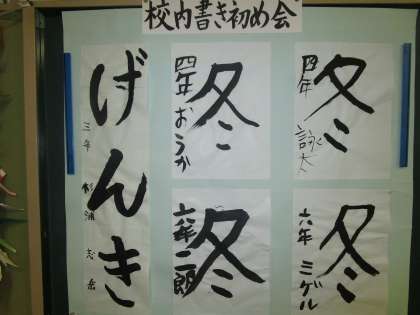 校内書き初め会
げんき
三年 杉浦志岳
冬
四年 おうか
冬
四年 詠太
冬
六年 二朗
冬
六年 ミゲル